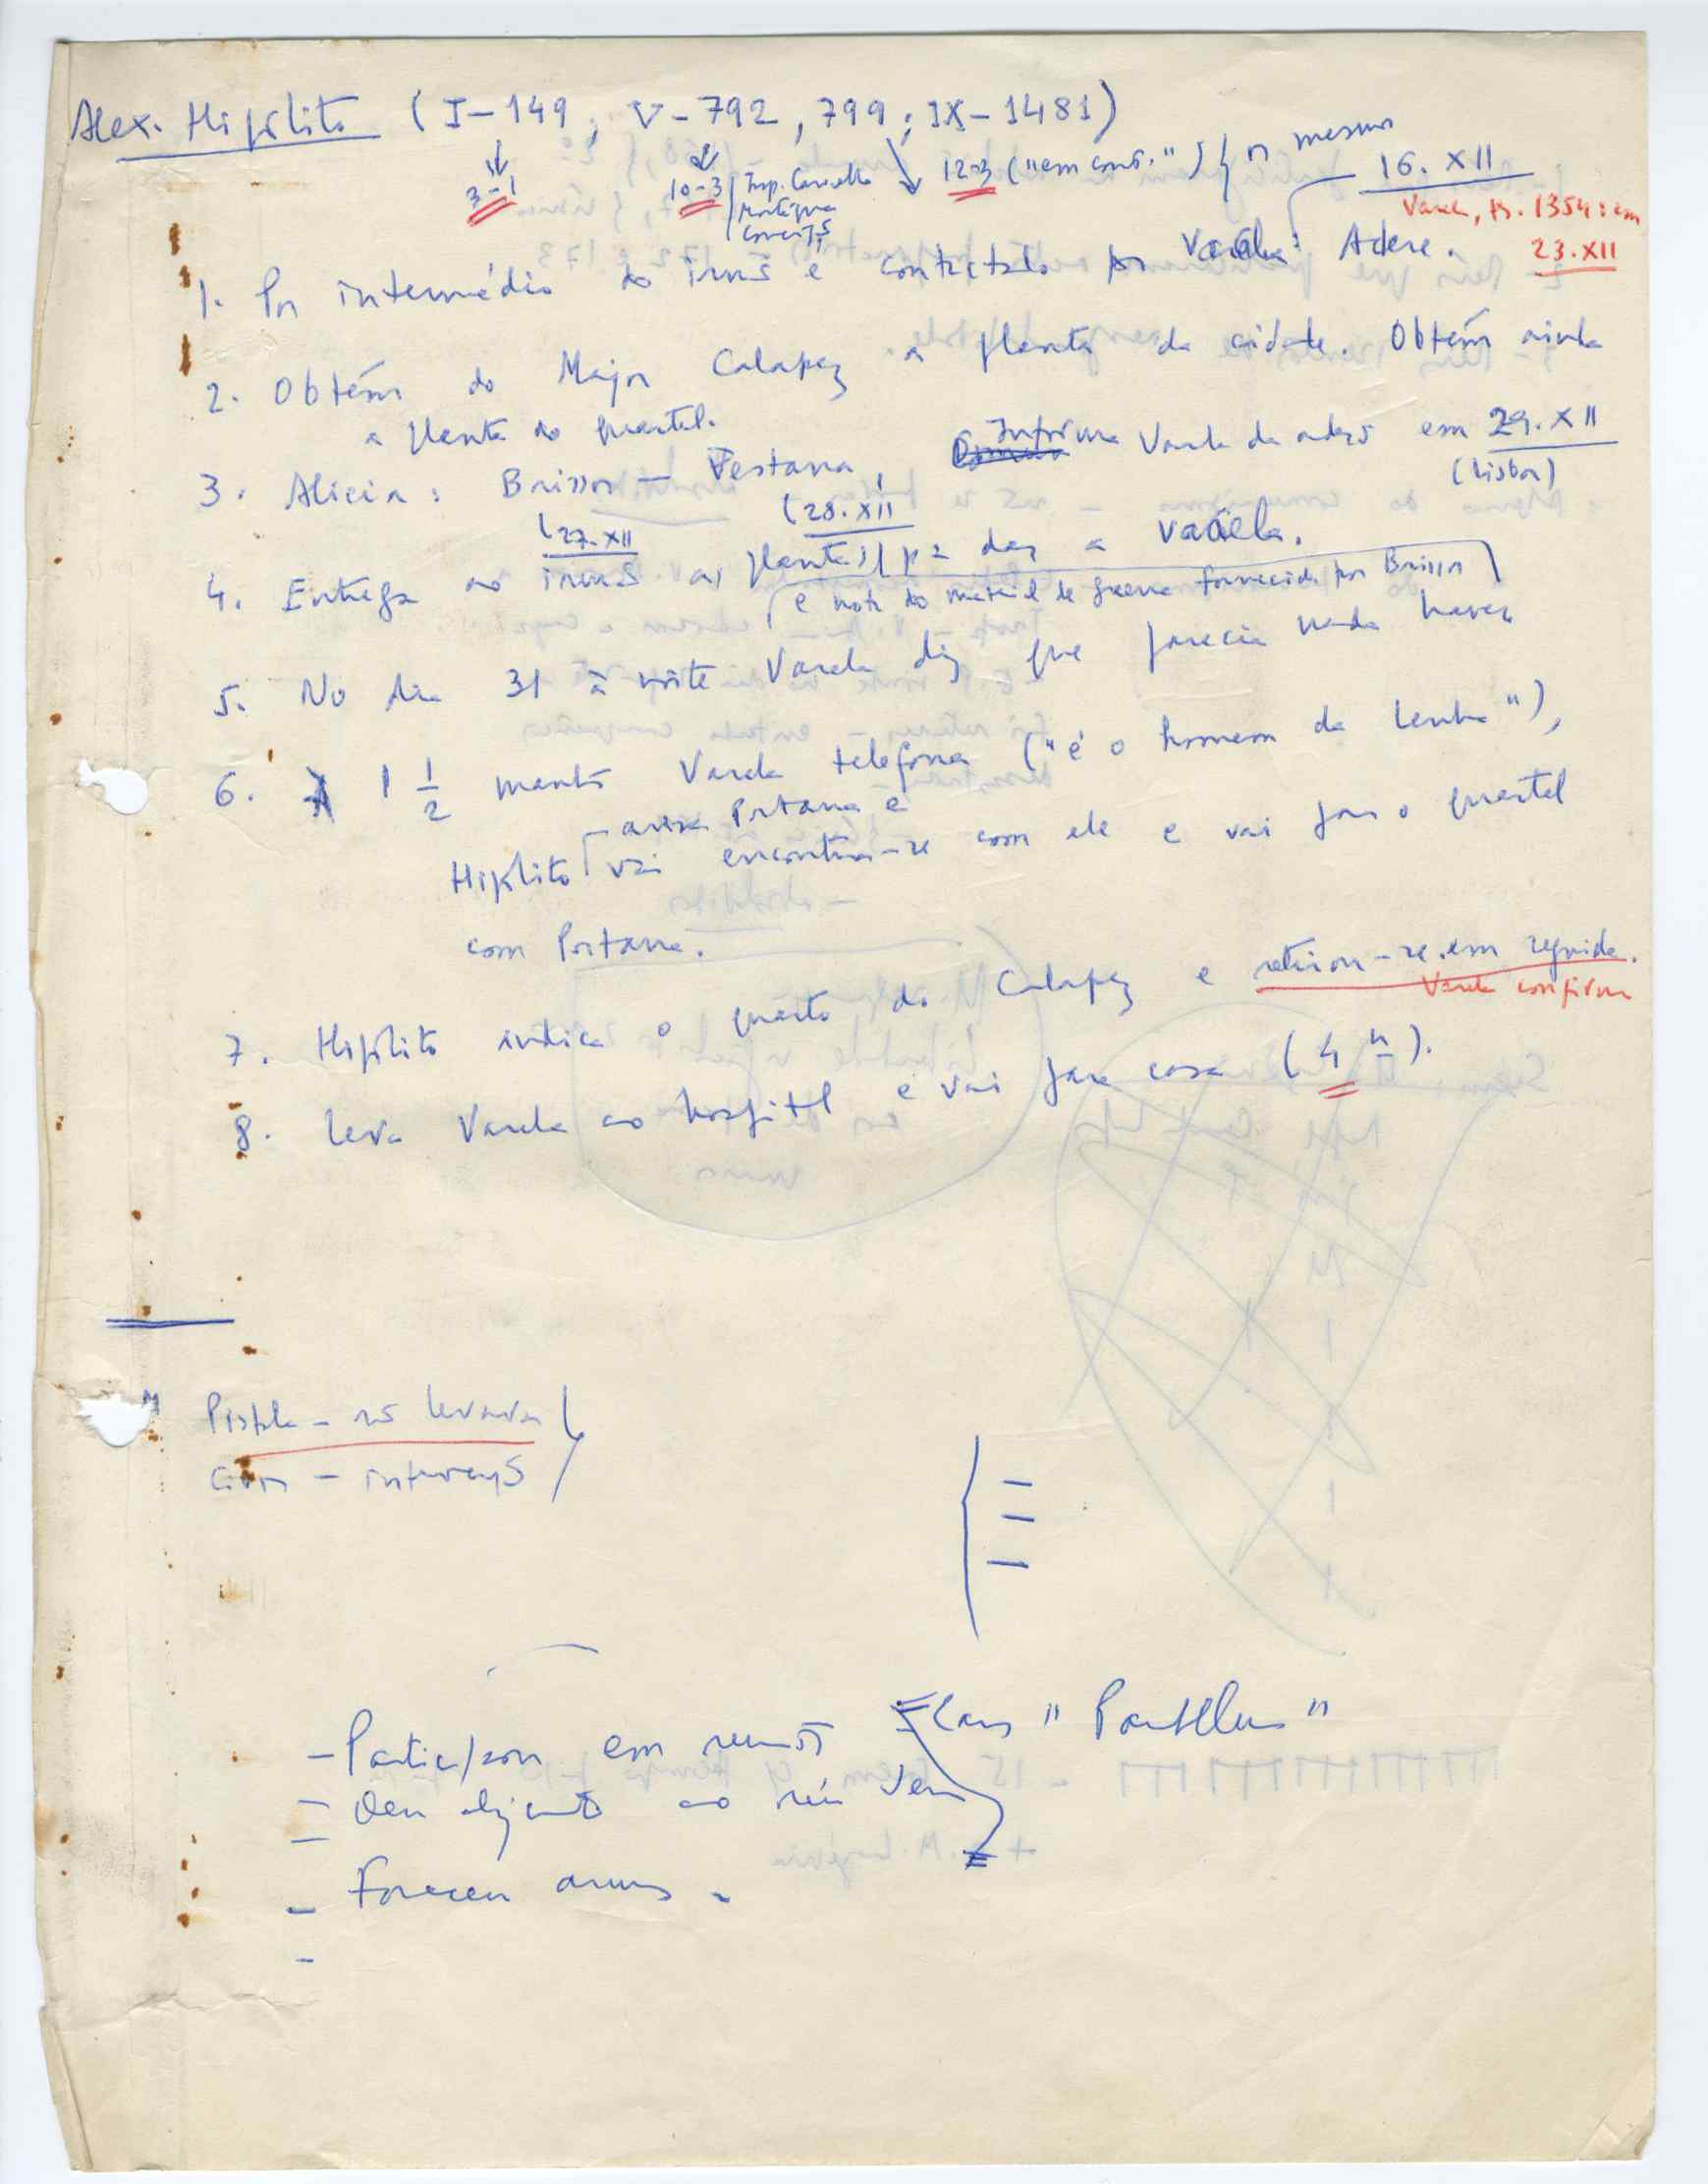 Alex. Hipólito (I-149; V-792, 799; IX-1481)
3-1 10-3 Insp. 12-3 ("em conf.") o mesmo 16. XII
Varela, fs. 1354: em
23. XII
1. Por intermédio do irmão é contactado por Varela: Adere.
2. Obtém do Major Calapez a planta da cidade. Obtém ainda
a planta do quartel.
3. Alicia: Brissos — Pestana, Informa Varela da adesão em 29. XII
(27. XII (28. XII (Lisboa)
4. Entrega ao irmão as plantas p.ª dar a Varela.
(e nota do material de guerra fornecida por Brissos)
5. No dia 31 à noite Varela diz que parecia nada haver
6. À 1 1/2 manhã Varela telefona ("é o homem da lenha"),
avisa Pestana e
Hipólito vai encontrar-se com ele e vai para o quartel
com Pestana.
7. Hipólito indica o quarto do Calapez e retirou-se em seguida.
Varela confirma
8. Leva Varela ao hospital e vai para casa (4 h).
Pistola - não levava
- intervenção
- Participou em reunião "
- Deu ao réu
- Forneceu armas.
-